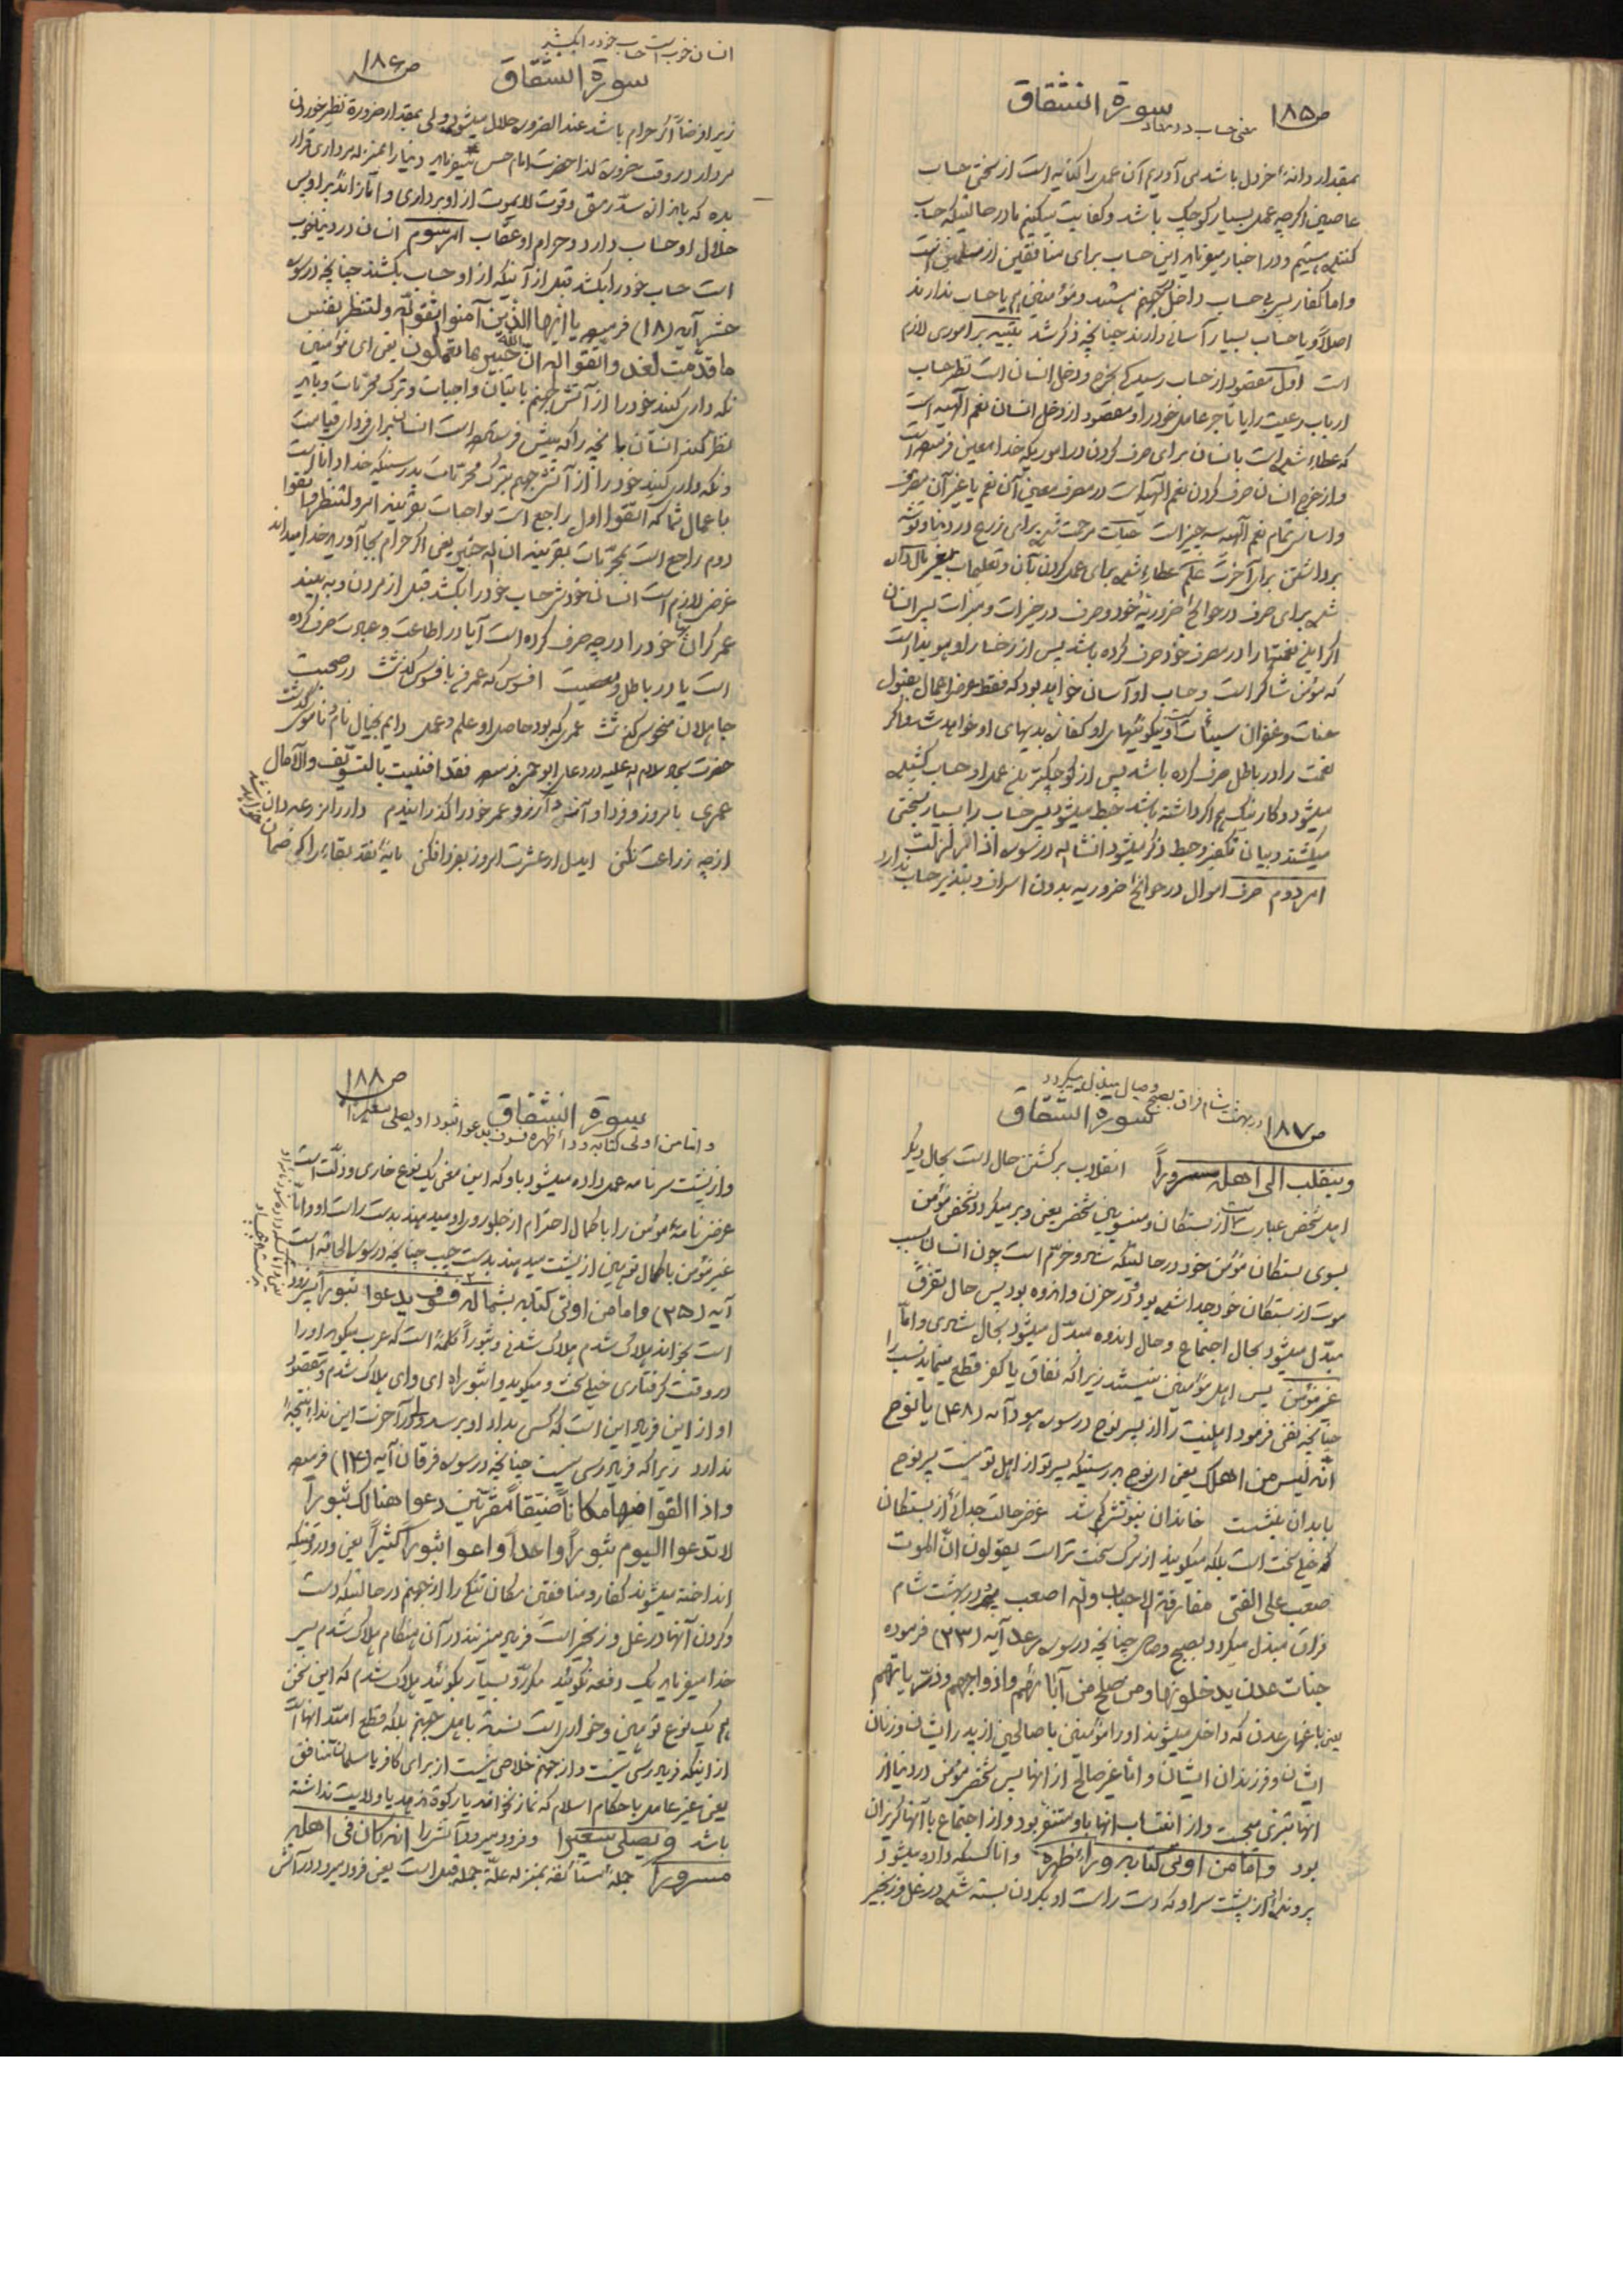 ص۱۸۵
سورة انشقاق
معنی حساب در معاد
بمقدار دانهٔ خردل باشد می آوریم آن عمل را کنایه است از سختی حساب
عاصین اگر چه عمل بسیار کوچک باشد و کفایت میکنیم ما در حالتیکه حساب
کننده هستیم و در اخبار میفرماید این حساب برای منافقین از مسلمین است
و اما کفار پس بی حساب داخل جهنم میشوند و مؤمنین هم یا حساب ندارند
اصلاً و یا حساب بسیار آسانی دارند چنانچه ذکر شد تنبیه بر اموری لازم
است اول مقصود از حساب رسیدگی بخرج و دخل انسان است نظیر حساب
ارباب رعیت را یا تاجر عامل خود را و مقصود از دخل انسان نعم الهیه است
که عطاء شده است بانسان برای صرف کردن در اموریکه خدا معین فرموده است
و از خرج انسان صرف کردن نعم الهیه است در مصرف معین آن نعم یا غیر آن مصرف
و اساس تمام نعم الهیه سه چیز است حیات مرحمت شده برای زرع در دنیا و توشه
برداشتن برای آخرت علم عطاء شده برای عمل کردن بآن و تعلیمات بغیر مال داده
شده برای صرف در حوائج ضروریهٔ خود و صرف در خیرات و مبرات پس انسان
اگر این نعمتها را در مصرف خود صرف کرده باشد پس از رخسار او هویدا است
که مؤمن شاکر است و حساب او آسان خواهد بود که فقط عرض اعمال بقبول
حسنات و غفران سیئات است و نیکوئیهای او کفاره بدیهای او خواهد شد و اگر
نعمت را در باطل صرف کرده باشد پس از کوچکترین عمل او حساب کشیده
میشود و کار نیک هم اگر داشته باشد حبط میشود پس حساب را بسیار بسختی
میکشند و بیان تکفیر و حبط ذکر میشود انشاء اله در سوره اذا زلزلت
امر دوم صرف اموال در حوائج ضروریه بدون اسراف و تبذیر حساب ندارد
انسان خوب است حساب خود را بکشد
سورة انشقاق
ص۱۸۶
زیرا فرضاً اگر حرام باشد عند الضروره حلال میشود ولی بمقدار ضرورة نظیر خوردن
مردار در وقت ضرورة لذا حضرت امام حسن میفرماید دنیا را بمنزله مرداری قرار
بده که باندازه سدّ رمق و قوت لایموت از او برداری و
حلال او حساب دارد و حرام او عقاب امر سوم انسان در دنیا خوب
است حساب خود را بکشد قبل از آنیکه از او حساب بکشند چنانچه در سوره
حشر آیه (۱۸) فرموده یا ایها الذین آمنوا اتقوا الله ولتنظر نفس
ما قدّمت لغد واتقوا اله انّ الله خبیر بما تعملون یعنی ای مؤمنین
نگه داری کنید خود را از آتش جهنم باتیان واجبات و ترک محرّمات و باید
نظر کند انسان بآنچه را که پیش فرستاده است انسان برای فردای قیامت
و نگه داری کنید خود را از آتش جهنم بترک محرّمات بدرستیکه خدا دانا است
باعمال شما که اتقوا اول راجع است بواجبات بقرینه امر ولتنظر و اتقوا
دوم راجع است بمحرّمات بقرینه ان اله خبیر یعنی اگر حرام بجا آورید خدا میداند
غرض لازم است انسان خودش حساب خود را بکشد قبل از مردن و به بیند
عمر گران بهای خود را در چه صرف کرده است آیا در اطاعت و عبادت صرف کرده
است یا در باطل و معصیت افسوس که عمرم بافسوس گذشت در صحبت
جاهلان منحوس گذشت عمری که بود حاصل او علم و عمل دایم بخیال نام و ناموس گذشت
حضرت سجاد سلام اله علیه در دعای ابو حمزه فرموده فقد افنیت بالتسویف والآمال
عمری بامروز و فردا و آرزو عمر خود را گذرانیدم
از چه زراعت نکنی ایدل ار عشرت امروز بفردا فکنی مایهٔ نقد بقا را که ضمان
خواهد شد
ص۱۸۷
در بهشت شام فراق بصبح وصال مبدل میگردد
سورة انشقاق
وینقلب الی اهله مسروراً انقلاب برگشتن حال است بحال دیگر
اهل شخص عبارت است از بستگان و منسوبین شخص یعنی و بر میگردد شخص مؤمن
بسوی بستگان مؤمن خود در حالتیکه شاد و خرّم است چون انسان بسبب
موت از بستگان خود جدا شده بود و در حزن و اندوه بود پس حال تفرّق
مبدّل میشود بحال اجتماع و حال اندوه مبدّل میشود بحال شادی و امّا
غیر مؤمن پس اهل مؤمنین نیستند زیرا که نفاق یا کفر قطع مینماید نسب را
چنانچه نفی فرمود اهلیت را از پسر نوح در سوره هود آیه (۴۸) یا نوح
انّه لیس من اهلک یعنی ای نوح بدرستیکه پسر تو از اهل تو نیست پسر نوح
با بدان بنشست خاندان نبوتش گم شد غرض حالت جدائی از بستگان
که خیلی سخت است بلکه میگویند از مرگ سخت تر است یقولون انّ الموت
صعب علی الفتی مفارقة الاحباب واله اصعب در بهشت شام
فراق مبدل میگردد بصبح وصال چنانچه در سوره رعد آیه (۲۳) فرموده
جنات عدن یدخلونها ومن صلح من آبائهم وازواجهم وذرّیاتهم
یعنی باغهای عدن که داخل میشوند او را مؤمنین با صالحین از پدر ایشان و زنان
ایشان و فرزندان ایشان و امّا غیر صالح از آنها پس شخص مؤمن در دنیا از
آنها تبرّی میجست و از انتساب آنها باو متنفر بود و از اجتماع با آنها گریزان
بود وامّا من اوتی کتابه وراء ظهره و امّا کسیکه داده میشود
پرونده او از پشت سر او که دست راست او بگردن بسته شده در غل و زنجیر
ص۱۸۸
سورة انشقاق
وامّا من اوتی کتابه وراء ظهره فسوف یدعوا ثبورا و یصلی سعیرا
و از پشت سر نامه عمل داده میشود باو که این معنی یک نوع خاری و ذلّت است
غرض نامهٔ مؤمن را با کمال احترام از جلو رو باو میدهند بدست راست او و امّا
غیر مؤمن با کمال توهین از پشت میدهند بدست چپ چنانچه در سوره الحاقه است
آیه (۲۵) واما من اوتی کتابه بشماله فسوف یدعوا ثبوراً پس زود
است بخواند هلاک شدم هلاک شدنی و ثبوراً کلمهٔ است که عرب میگوید او را
در وقت گرفتاری خیلی سخت و میگوید واثبوراه ای وای هلاک شدم و مقصود
او از این فریاد این است که کسی بداد او برسد و در آخرت این نداء نتیجهٔ
ندارد زیرا که فریاد رسی نیست چنانچه در سوره فرقان آیه (۱۴) فرموده
واذا القوا منها مکاناً ضیّقاً مقرّنین دعوا هنالک ثبوراً
لا تدعوا الیوم ثبوراً واحداً وادعوا ثبوراً کثیراً یعنی و در وقتیکه
انداخته میشوند کفار و منافقین مکان تنگی را از جهنم در حالتیکه دست
و گردن آنها در غل و زنجیر است فریاد میزنند در آن هنگام هلاک شدم پس
خدا میفرماید یک دفعه نگوئید مکرّر و بسیار بگوئید هلاک شدم که این سخن
هم یک نوع توهین و خواری است نسبت باهل جهنم بلکه قطع امید آنها است
از اینکه فریاد رسی نیست و از جهنم خلاصی نیست از برای کافر یا مسلمان منافق
یعنی غیر عامل باحکام اسلام که نماز نخواند یا زکوة ندهد یا ولایت نداشته
باشد ویصلی سعیراً و فرود میرود آتش را انه کان فی اهله
مسروراً جملهٔ مستأنفه بمنزله علّة جمله قبل است یعنی فرود میرود در آتش